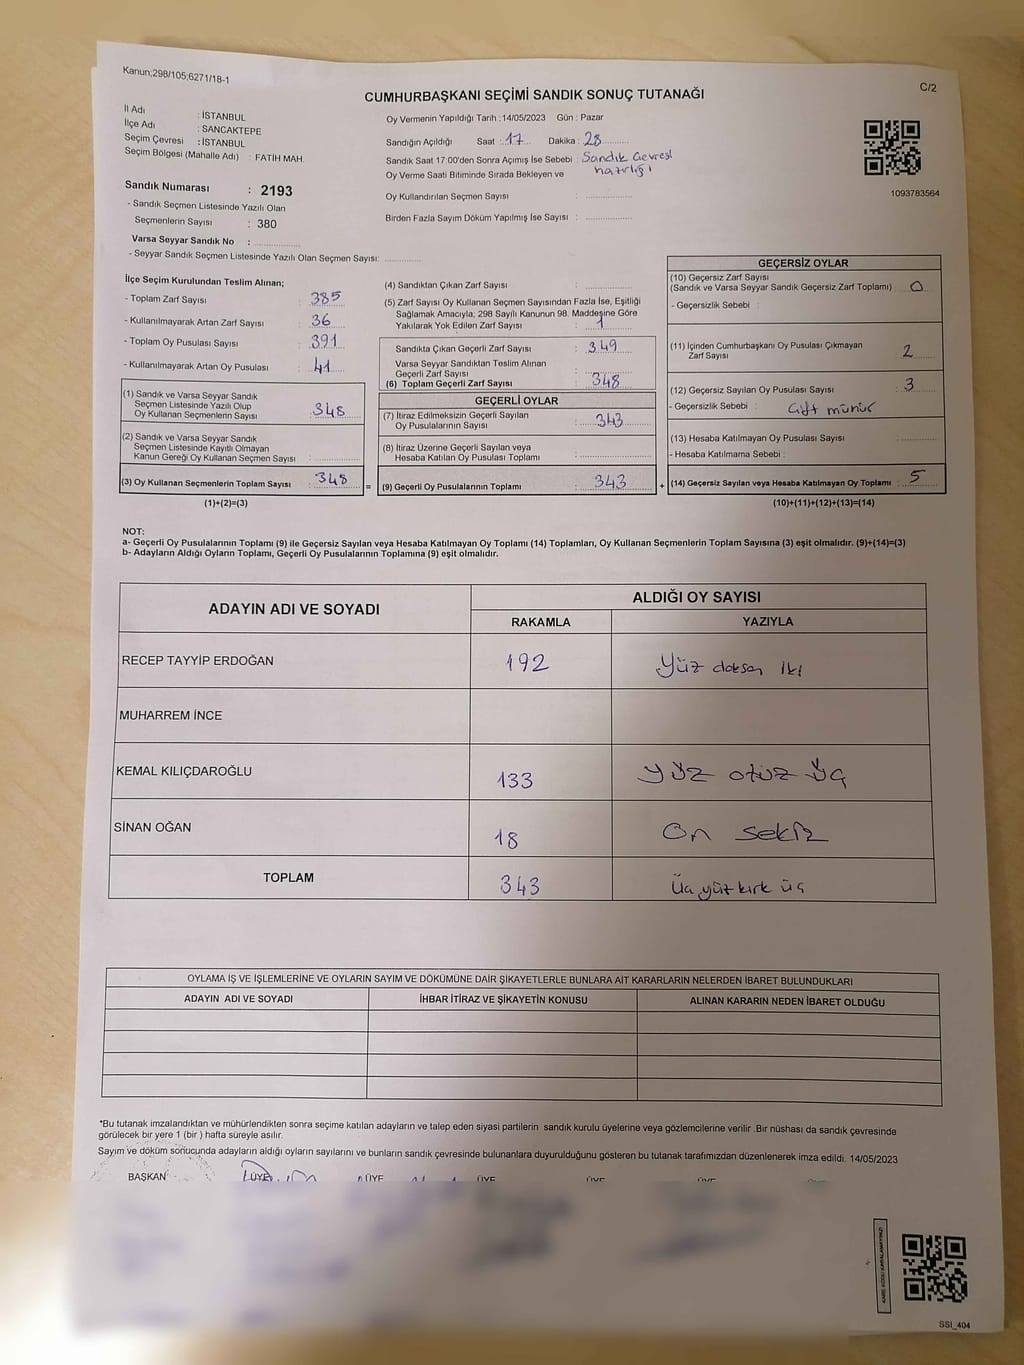 Kanun;298/105;6271/18-1
C/2
CUMHURBAŞKANI SEÇİMİ SANDIK SONUÇ TUTANAĞI
İl Adı : İSTANBUL
İlçe Adı : SANCAKTEPE
Seçim Çevresi : İSTANBUL
Seçim Bölgesi (Mahalle Adı) : FATİH MAH.
Oy Vermenin Yapıldığı Tarih :14/05/2023 Gün : Pazar
Sandığın Açıldığı Saat : 17 Dakika : 28
Sandık Saat 17:00'den Sonra Açımış İse Sebebi : Sandık Çevresi
hazırlığı
Oy Verme Saati Bitiminde Sırada Bekleyen ve
Oy Kullandırılan Seçmen Sayısı :
Birden Fazla Sayım Döküm Yapılmış İse Sayısı :
1093783564
Sandık Numarası : 2193
- Sandık Seçmen Listesinde Yazılı Olan
Seçmenlerin Sayısı : 380
Varsa Seyyar Sandık No :
- Seyyar Sandık Seçmen Listesinde Yazılı Olan Seçmen Sayısı:
İlçe Seçim Kurulundan Teslim Alınan;
- Toplam Zarf Sayısı : 385
- Kullanılmayarak Artan Zarf Sayısı : 36
- Toplam Oy Pusulası Sayısı : 391
- Kullanılmayarak Artan Oy Pusulası : 41
(1) Sandık ve Varsa Seyyar Sandık
Seçmen Listesinde Yazılı Olup
Oy Kullanan Seçmenlerin Sayısı : 348
(2) Sandık ve Varsa Seyyar Sandık
Seçmen Listesinde Kayıtlı Olmayan
Kanun Gereği Oy Kullanan Seçmen Sayısı :
(3) Oy Kullanan Seçmenlerin Toplam Sayısı : 348 =
(1)+(2)=(3)
(4) Sandıktan Çıkan Zarf Sayısı :
(5) Zarf Sayısı Oy Kullanan Seçmen Sayısından Fazla İse, Eşitliği
Sağlamak Amacıyla; 298 Sayılı Kanunun 98. Maddesine Göre
Yakılarak Yok Edilen Zarf Sayısı : 1
Sandıkta Çıkan Geçerli Zarf Sayısı : 349
Varsa Seyyar Sandıktan Teslim Alınan
Geçerli Zarf Sayısı :
(6) Toplam Geçerli Zarf Sayısı : 348
GEÇERLİ OYLAR
(7) İtiraz Edilmeksizin Geçerli Sayılan
Oy Pusulalarının Sayısı : 343
(8) İtiraz Üzerine Geçerli Sayılan veya
Hesaba Katılan Oy Pusulası Toplamı :
(9) Geçerli Oy Pusulalarının Toplamı : 343 +
GEÇERSİZ OYLAR
(10) Geçersiz Zarf Sayısı
(Sandık ve Varsa Seyyar Sandık Geçersiz Zarf Toplamı) : 0
- Geçersizlik Sebebi :
(11) İçinden Cumhurbaşkanı Oy Pusulası Çıkmayan
Zarf Sayısı : 2
(12) Geçersiz Sayılan Oy Pusulası Sayısı : 3
- Geçersizlik Sebebi : Çift mühür
(13) Hesaba Katılmayan Oy Pusulası Sayısı :
- Hesaba Katılmama Sebebi :
(14) Geçersiz Sayılan veya Hesaba Katılmayan Oy Toplamı : 5
(10)+(11)+(12)+(13)=(14)
NOT:
a- Geçerli Oy Pusulalarının Toplamı (9) ile Geçersiz Sayılan veya Hesaba Katılmayan Oy Toplamı (14) Toplamları, Oy Kullanan Seçmenlerin Toplam Sayısına (3) eşit olmalıdır. (9)+(14)=(3)
b- Adayların Aldığı Oyların Toplamı, Geçerli Oy Pusulalarının Toplamına (9) eşit olmalıdır.
ADAYIN ADI VE SOYADI
ALDIĞI OY SAYISI
RAKAMLA YAZIYLA
RECEP TAYYİP ERDOĞAN 192 Yüz doksan iki
MUHARREM İNCE
KEMAL KILIÇDAROĞLU 133 yüz otuz üç
SİNAN OĞAN 18 On sekiz
TOPLAM 343 Üç yüz kırk üç
OYLAMA İŞ VE İŞLEMLERİNE VE OYLARIN SAYIM VE DÖKÜMÜNE DAİR ŞİKAYETLERLE BUNLARA AİT KARARLARIN NELERDEN İBARET BULUNDUKLARI
ADAYIN ADI VE SOYADI İHBAR İTİRAZ VE ŞİKAYETİN KONUSU ALINAN KARARIN NEDEN İBARET OLDUĞU
*Bu tutanak imzalandıktan ve mühürlendikten sonra seçime katılan adayların ve talep eden siyasi partilerin sandık kurulu üyelerine veya gözlemcilerine verilir .Bir nüshası da sandık çevresinde
görülecek bir yere 1 (bir ) hafta süreyle asılır.
Sayım ve döküm sonucunda adayların aldığı oyların sayılarını ve bunların sandık çevresinde bulunanlara duyurulduğunu gösteren bu tutanak tarafımızdan düzenlenerek imza edildi. 14/05/2023
BAŞKAN ÜYE ÜYE ÜYE ÜYE ÜYE ÜYE
SSI_404